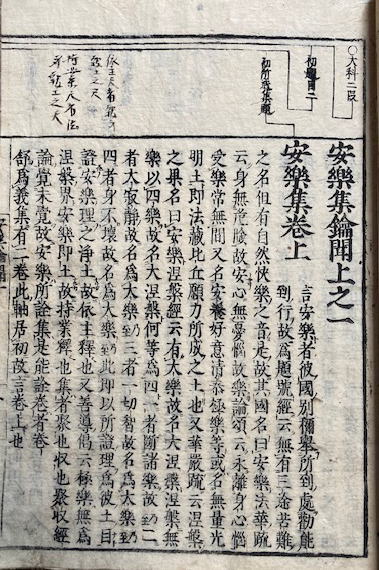 ○大科二段
初題目二
初所釋集題
安樂集鑰聞上之一
安樂集卷上
言安樂者彼國別彌舉所到處勸能
到行故為題號經云無有三途苦難
之名但有自然快樂之音是故其國名曰安樂法華疏
云身無危險故安心無憂惱故樂論頌云永離身心惱
受樂常無間又名安養好意清泰極樂等或名無量光
明土即法藏比丘願力所成之土也又華嚴疏云涅槃
之果名曰安樂涅槃經云有大樂故名大涅槃涅槃無
樂以四樂故名大涅槃何等為四一者斷諸樂故乃至二
者大寂靜故名為大樂乃至三者一切智故名為大樂乃至
四者身不壞故名為大樂乃至此即以所證理為彼土目
證安樂理之淨土故依主釋也又善導偈云極樂無為
涅槃界安樂即土故持業釋也集者聚也収也聚収經
論覺未覺故安樂所詮集是能詮卷者卷
舒為義集有二卷此軸居初故言卷上也